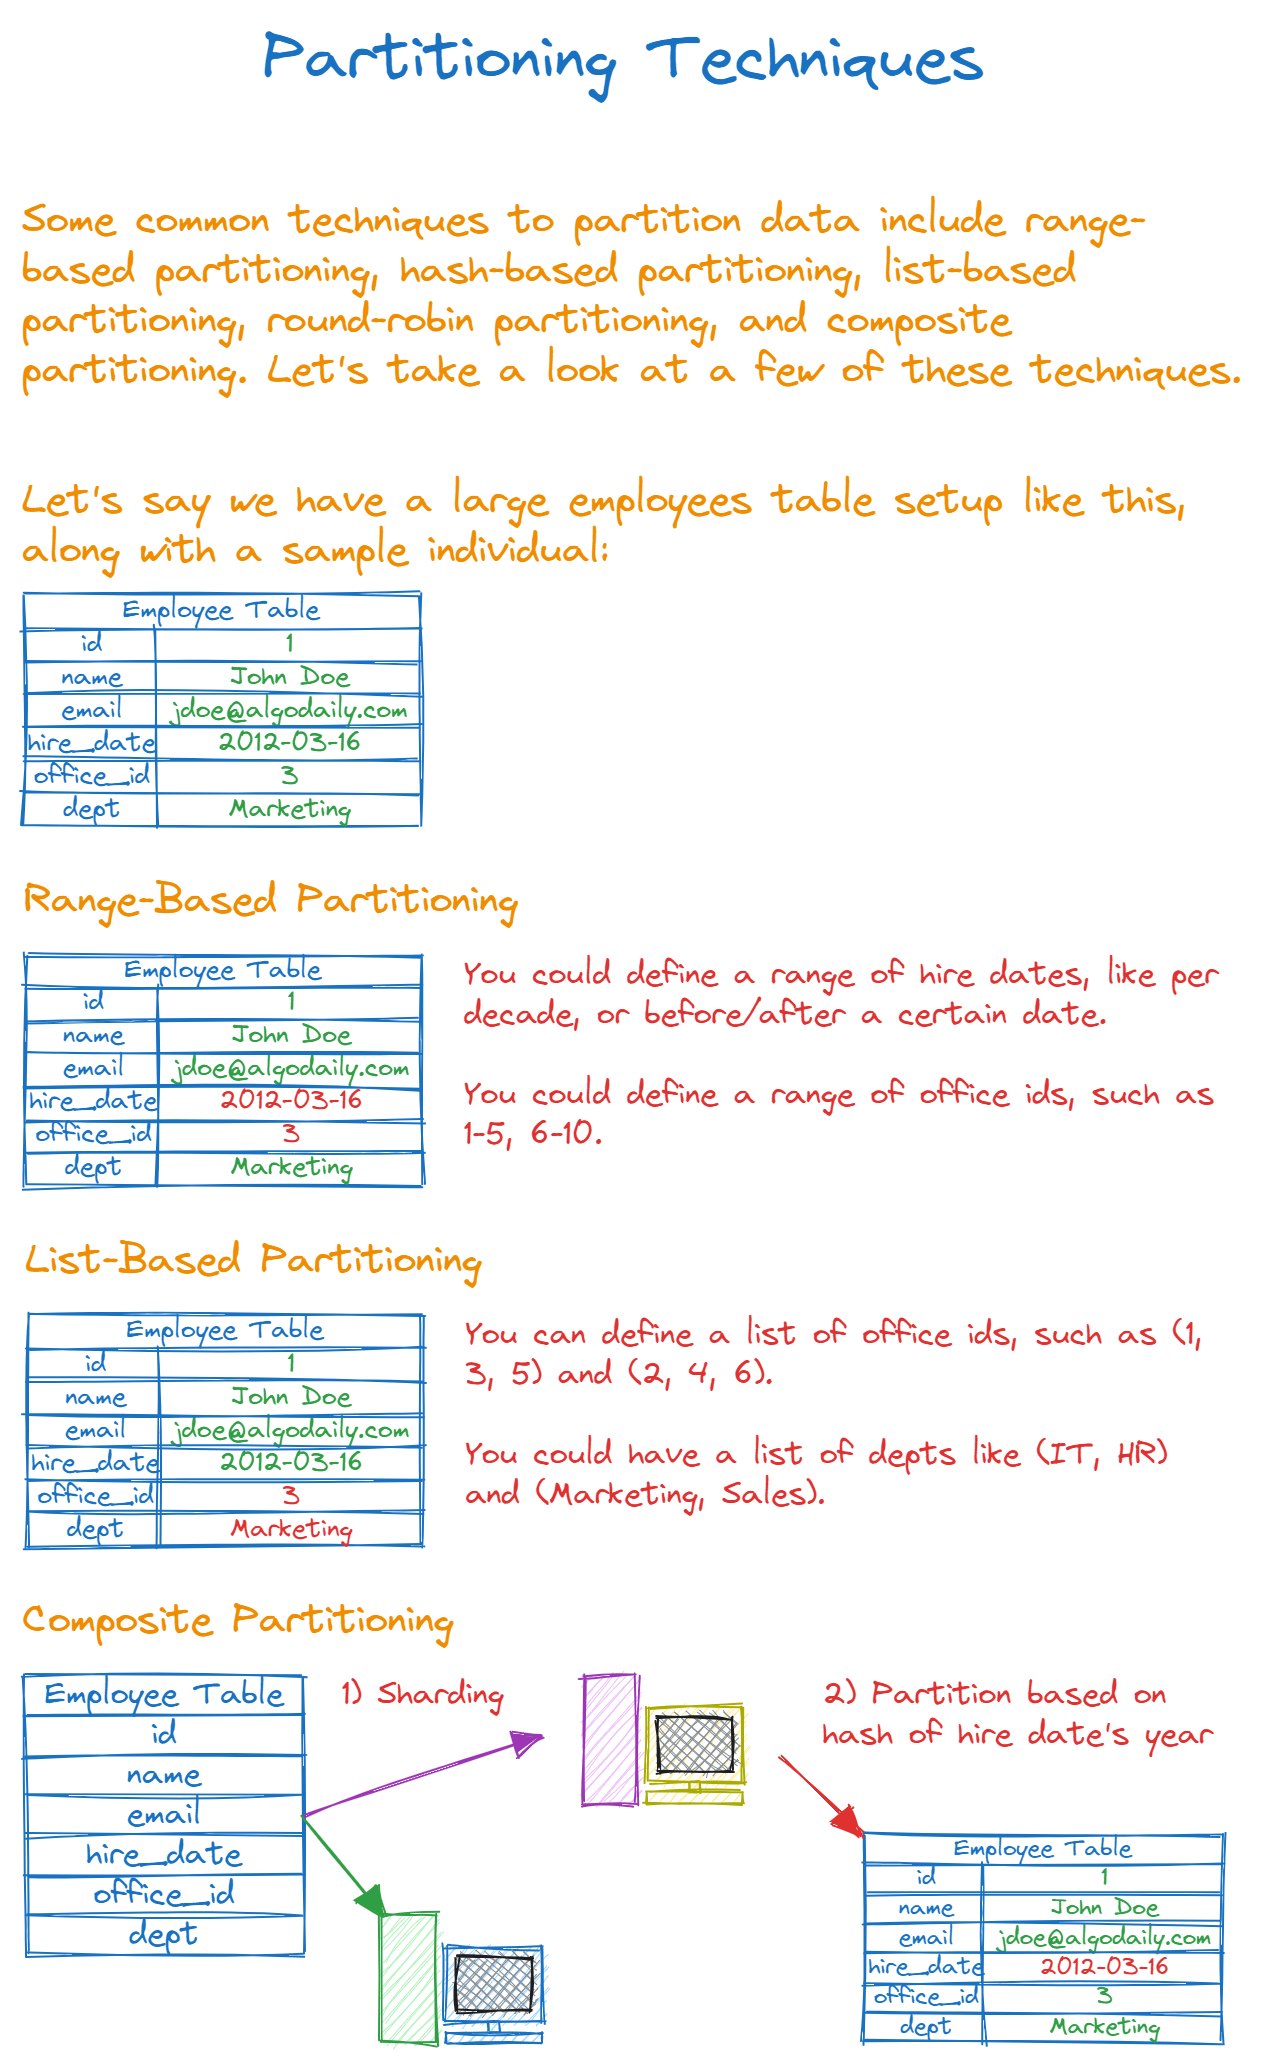 Partitioning Techniques
Some common techniques to partition data include range-
based partitioning, hash-based partitioning, list-based
partitioning, round-robin partitioning, and composite
partitioning. Let's take a look at a few of these techniques.
Let's say we have a large employees table setup like this,
along with a sample individual:
Employee Table
id 1
name John Doe
email jdoe@algodaily.com
hire_date 2012-03-16
office_id 3
dept Marketing
Range-Based Partitioning
Employee Table
id 1
name John Doe
email jdoe@algodaily.com
hire_date 2012-03-16
office_id 3
dept Marketing
You could define a range of hire dates, like per
decade, or before/after a certain date.
You could define a range of office ids, such as
1-5, 6-10.
List-Based Partitioning
Employee Table
id 1
name John Doe
email jdoe@algodaily.com
hire_date 2012-03-16
office_id 3
dept Marketing
You can define a list of office ids, such as (1,
3, 5) and (2, 4, 6).
You could have a list of depts like (IT, HR)
and (Marketing, Sales).
Composite Partitioning
Employee Table
id
name
email
hire_date
office_id
dept
1) Sharding
2) Partition based on
hash of hire date's year
Employee Table
id 1
name John Doe
email jdoe@algodaily.com
hire_date 2012-03-16
office_id 3
dept Marketing